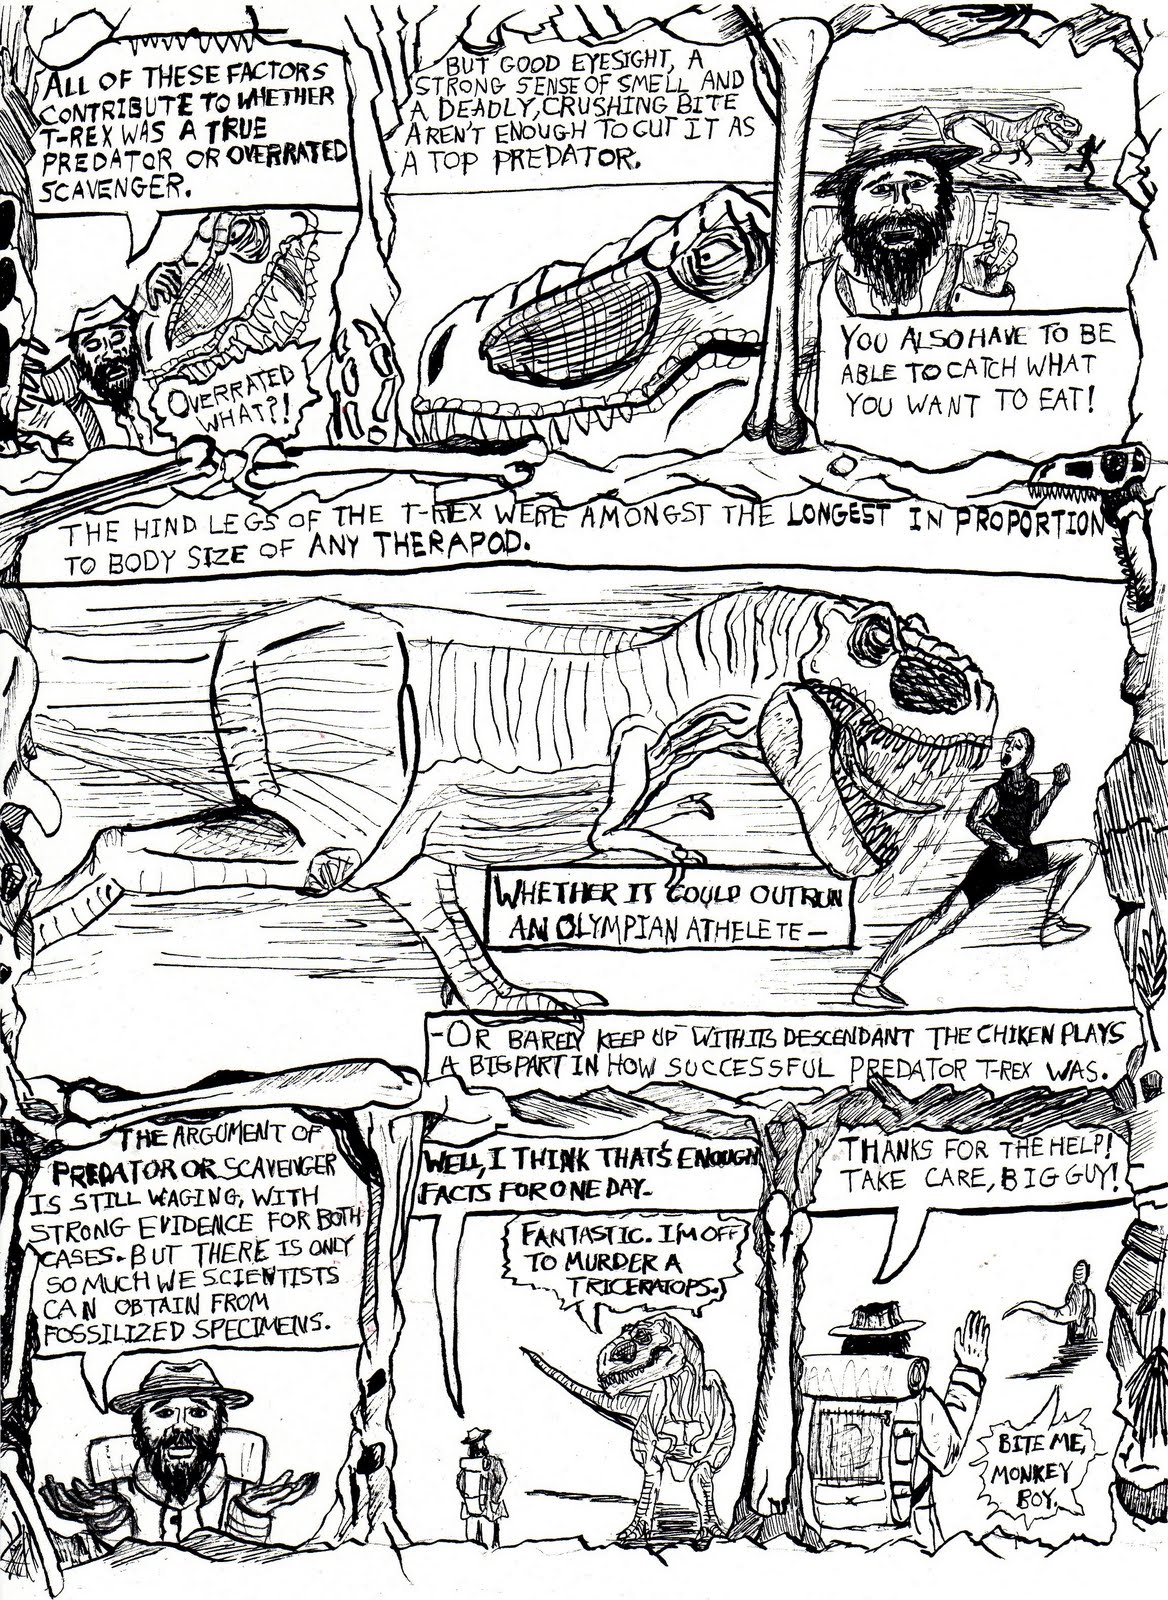 ALL OF THESE FACTORS
CONTRIBUTE TO WHETHER
T-REX WAS A TRUE
PREDATOR OR OVERRATED
SCAVENGER.
OVERRATED
WHAT?!
BUT GOOD EYESIGHT, A
STRONG SENSE OF SMELL AND
A DEADLY, CRUSHING BITE
AREN'T ENOUGH TO CUT IT AS
A TOP PREDATOR.
YOU ALSO HAVE TO BE
ABLE TO CATCH WHAT
YOU WANT TO EAT!
THE HIND LEGS OF THE T-REX WERE AMONGST THE LONGEST IN PROPORTION
TO BODY SIZE OF ANY THERAPOD.
WHETHER IT COULD OUTRUN
AN OLYMPIAN ATHELETE—
-OR BARELY KEEP UP WITH ITS DESCENDANT THE CHIKEN PLAYS
A BIG PART IN HOW SUCCESSFUL PREDATOR T-REX WAS.
THE ARGUMENT OF
PREDATOR OR SCAVENGER
IS STILL WAGING, WITH
STRONG EVIDENCE FOR BOTH
CASES. BUT THERE IS ONLY
SO MUCH WE SCIENTISTS
CAN OBTAIN FROM
FOSSILIZED SPECIMENS.
WELL, I THINK THAT'S ENOUGH
FACTS FOR ONE DAY.
FANTASTIC. I'M OFF
TO MURDER A
TRICERATOPS.
THANKS FOR THE HELP!
TAKE CARE, BIG GUY!
BITE ME,
MONKEY
BOY.